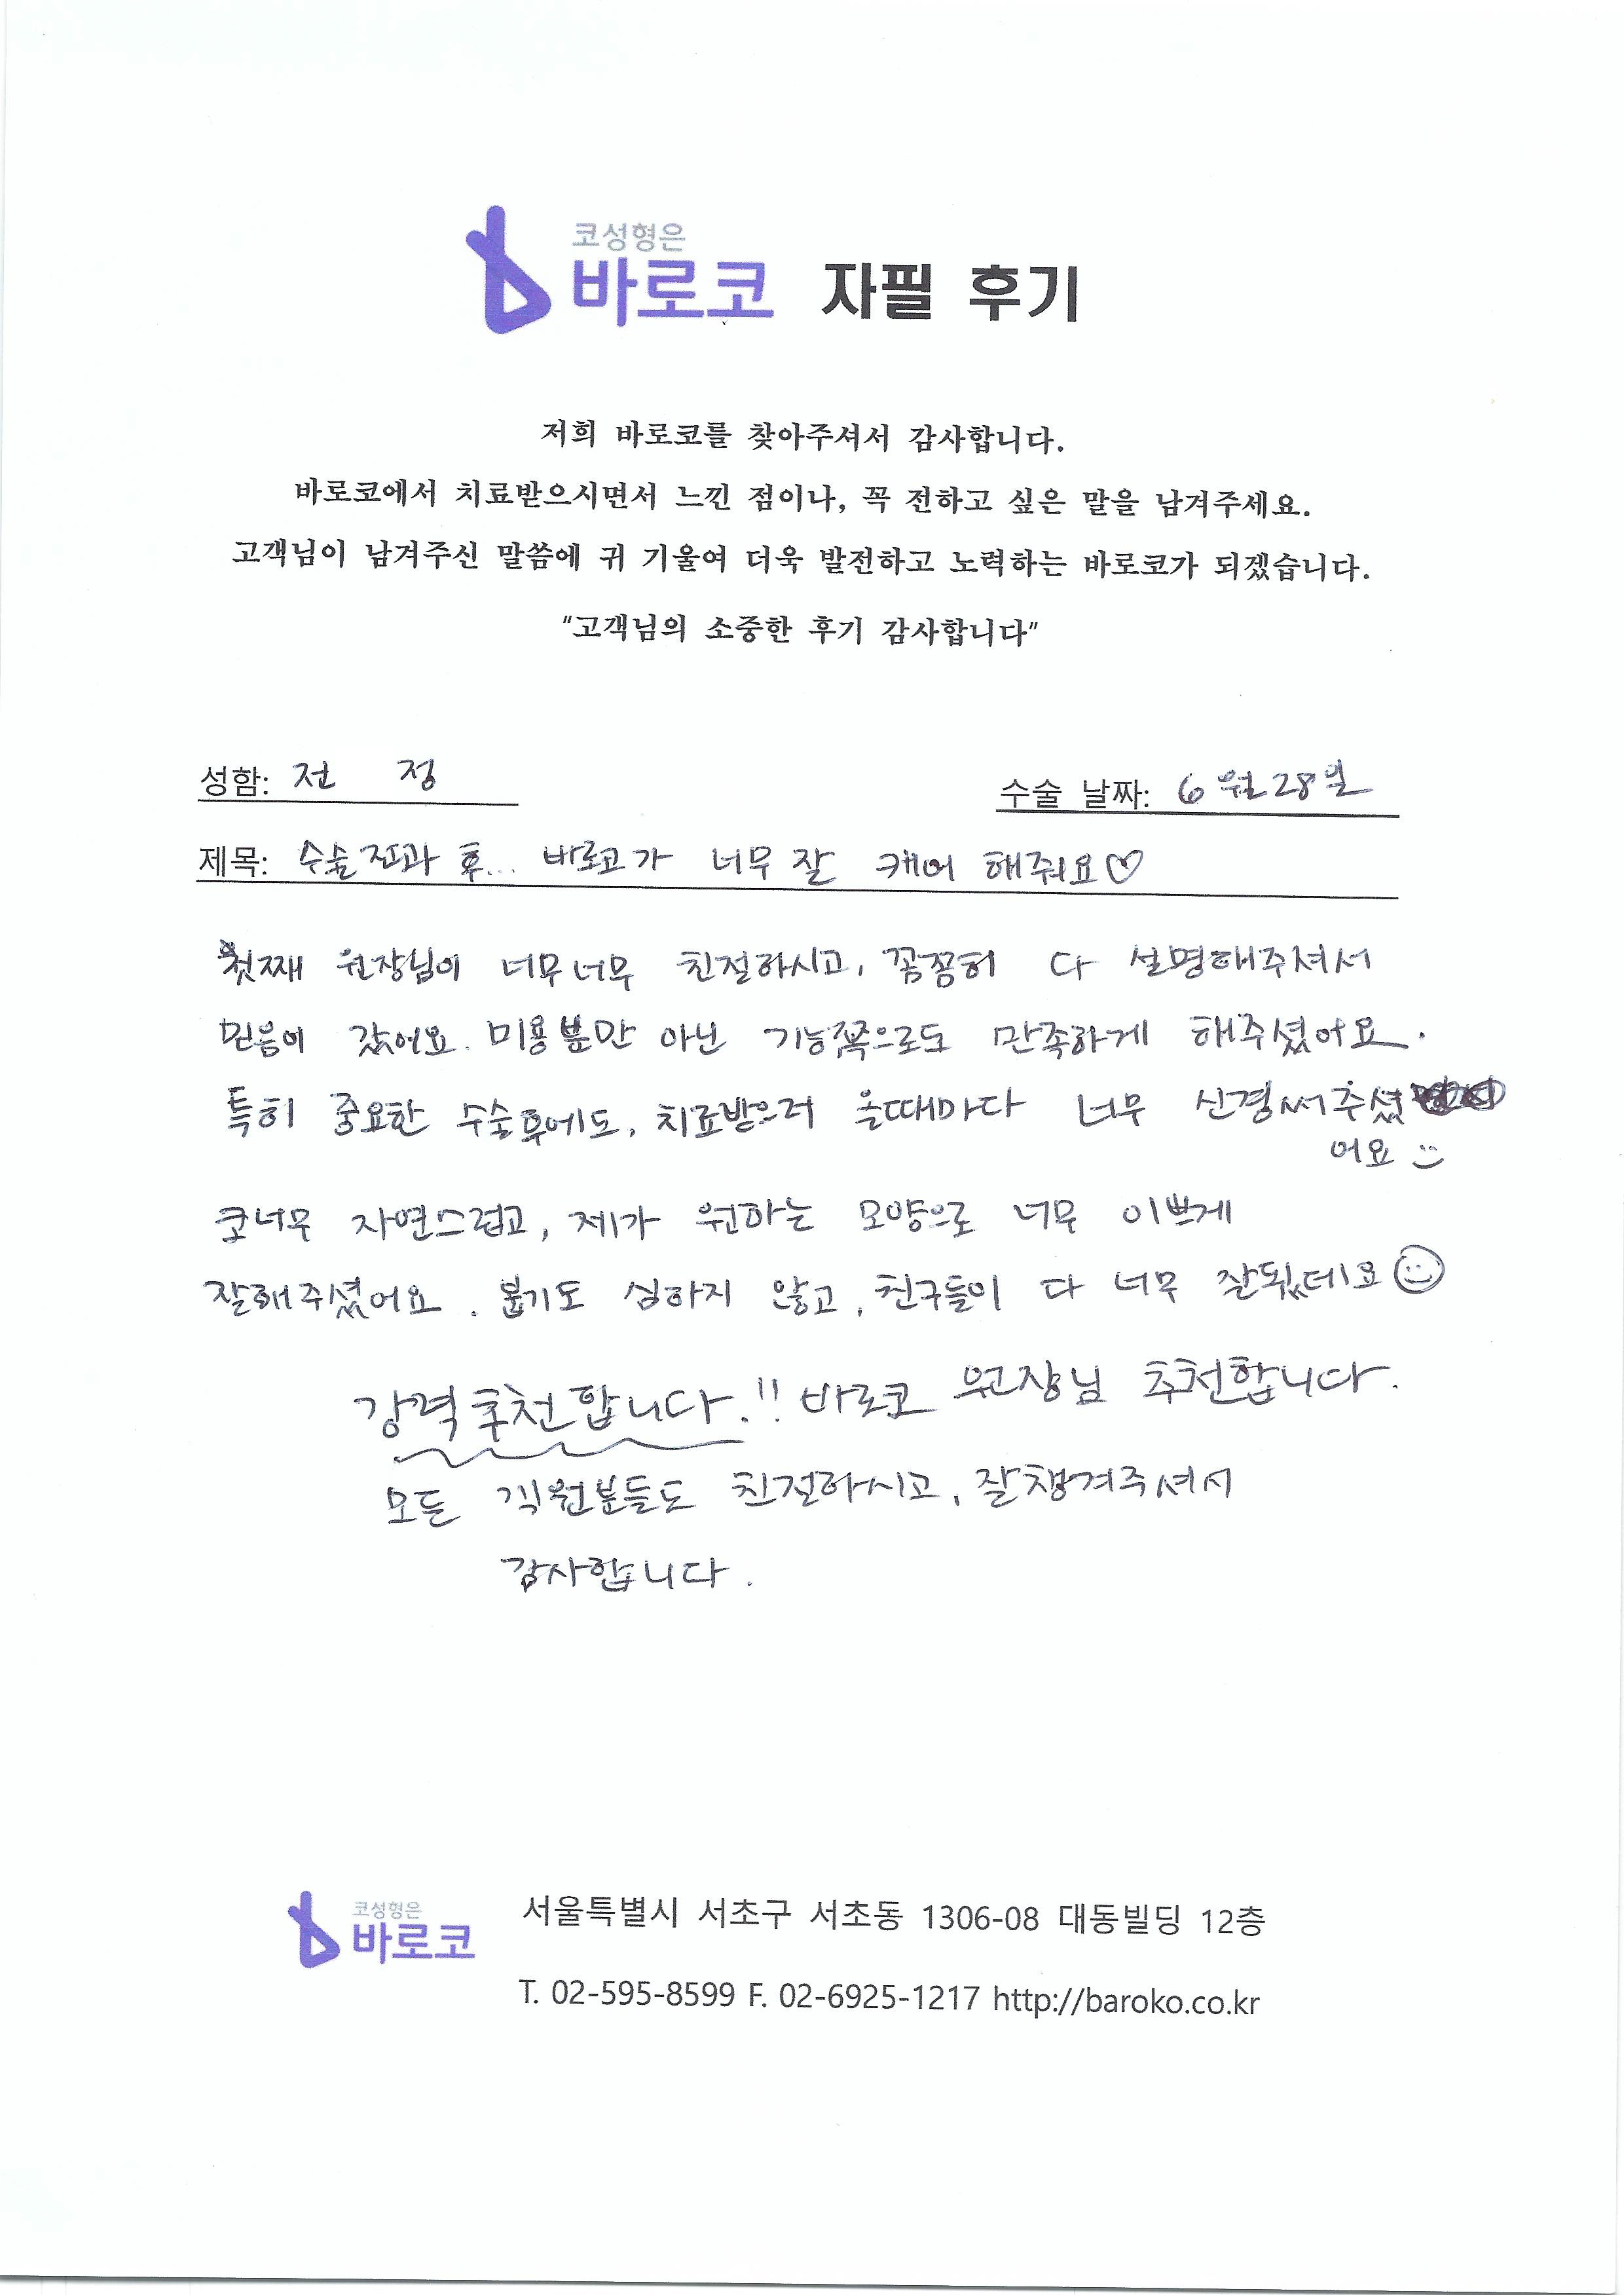 코성형은
바로코 자필 후기
저희 바로코를 찾아주셔서 감사합니다.
바로코에서 치료받으시면서 느낀 점이나, 꼭 전하고 싶은 말을 남겨주세요.
고객님이 남겨주신 말씀에 귀 기울여 더욱 발전하고 노력하는 바로코가 되겠습니다.
"고객님의 소중한 후기 감사합니다"
성함: 전 정 수술 날짜: 6월 28일
제목: 수술 전과 후... 바로코가 너무 잘 캐어 해줘요♡
첫째 원장님이 너무너무 친절하시고, 꼼꼼히 다 설명해주셔서
믿음이 갔어요. 미용뿐만 아닌 기능쪽으로도 만족하게 해주셨어요.
특히 중요한 수술후에도, 치료받으러 올때마다 너무 신경써주셨
어요 :)
코너무 자연스럽고, 제가 원하는 모양으로 너무 이쁘게
잘해주셨어요. 붓기도 심하지 않고, 친구들이 다 너무 잘됬데요☺
강력추천합니다.!! 바로코 원장님 추천합니다.
모든 직원분들도 친절하시고, 잘챙겨주셔서
감사합니다.
코성형은
바로코
서울특별시 서초구 서초동 1306-08 대동빌딩 12층
T. 02-595-8599 F. 02-6925-1217 http://baroko.co.kr